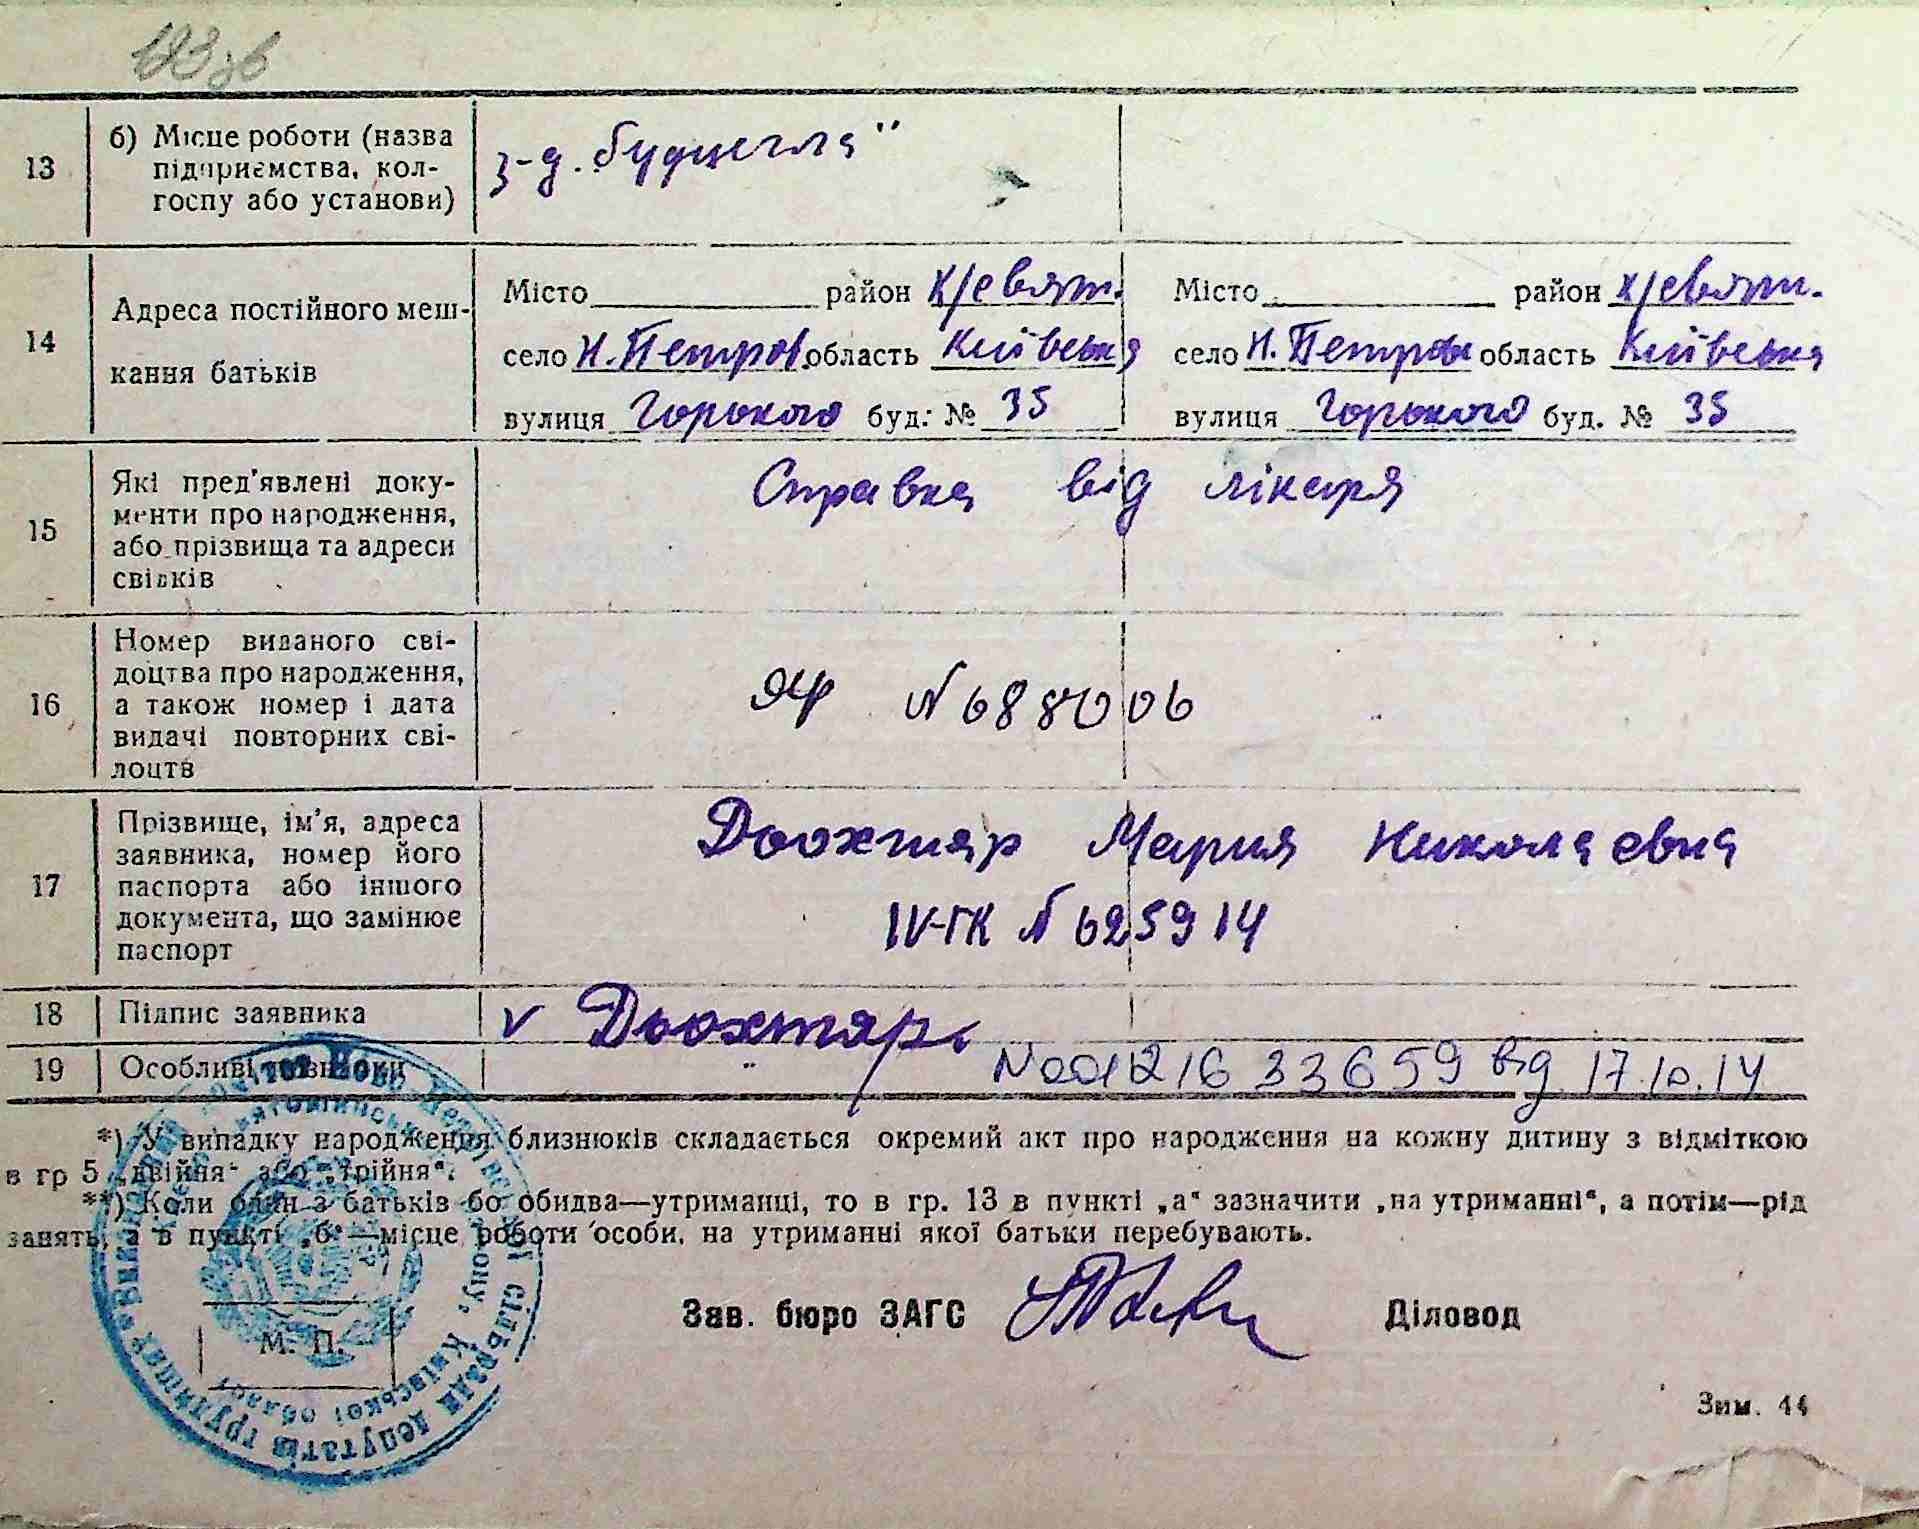 193 зв
13
б) Місце роботи (назва
підприємства, кол-
госпу або установи)
з-д. будцегла"
14
Адреса постійного меш-
кання батьків
Місто район К/Свят.
село Н.Петров. область Київська
вулиця Горького буд. № 35
Місто район К/Святи.
село Н. Петров область Київська
вулиця Горького буд. № 35
15
Які пред'явлені доку-
менти про народження,
або прізвища та адреси
свідків
Справка від лікаря
16
Номер виданого сві-
доцтва про народження,
а також номер і дата
видачі повторних сві-
доцтв
ЯЧ N 688006
17
Прізвище, ім'я, адреса
заявника, номер його
паспорта або іншого
документа, що замінює
паспорт
Доохтяр Мария Николаевна
IV-ГК N 625914
18 Підпис заявника
v Доохтяр.
19 Особливі
N00121633659 від 17.10.14
*) У випадку народження близнюків складається окремий акт про народження на кожну дитину з відміткою
в гр 5 „двійня" або „трійня".
**) Коли один з батьків бо обидва—утриманці, то в гр. 13 в пункті „а" зазначити „на утриманні", а потім—рід
занять, а в пункті „б"—місце роботи особи, на утриманні якої батьки перебувають.
Зав. бюро ЗАГС Діловод
М. П.
Зим. 44
сільради депутатів трудящих
району, Київської області